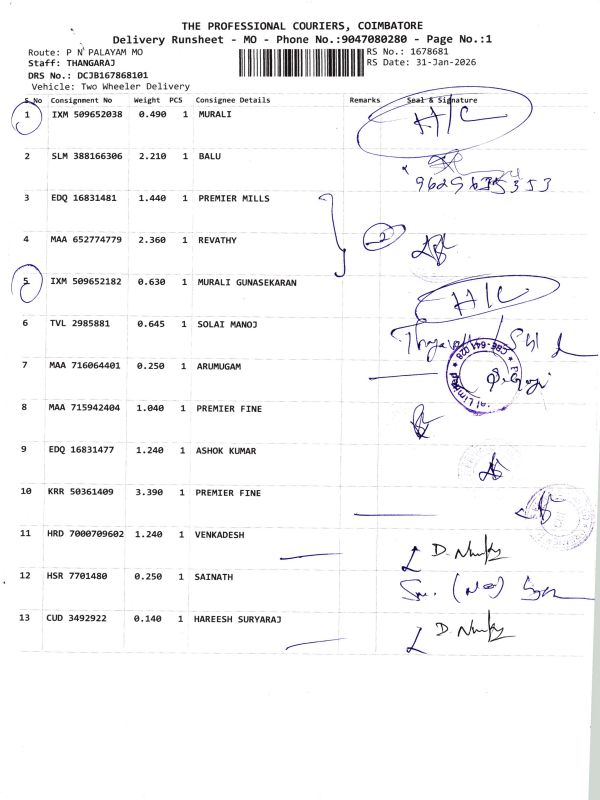 THE PROFESSIONAL COURIERS, COIMBATORE
Delivery Runsheet - MO - Phone No.:9047080280 - Page No.:1
Route: P N PALAYAM MO RS No.: 1678681
Staff: THANGARAJ RS Date: 31-Jan-2026
DRS No.: DCJB167868101
Vehicle: Two Wheeler Delivery
S.No Consignment No Weight PCS Consignee Details Remarks Seal & Signature
1 IXM 509652038 0.490 1 MURALI H/C
2 SLM 388166306 2.210 1 BALU
3 EDQ 16831481 1.440 1 PREMIER MILLS
4 MAA 652774779 2.360 1 REVATHY 2
5 IXM 509652182 0.630 1 MURALI GUNASEKARAN H/C
6 TVL 2985881 0.645 1 SOLAI MANOJ
7 MAA 716064401 0.250 1 ARUMUGAM CBE-641 028
8 MAA 715942404 1.040 1 PREMIER FINE
9 EDQ 16831477 1.240 1 ASHOK KUMAR
10 KRR 50361409 3.390 1 PREMIER FINE
11 HRD 7000709602 1.240 1 VENKADESH
12 HSR 7701480 0.250 1 SAINATH
13 CUD 3492922 0.140 1 HAREESH SURYARAJ